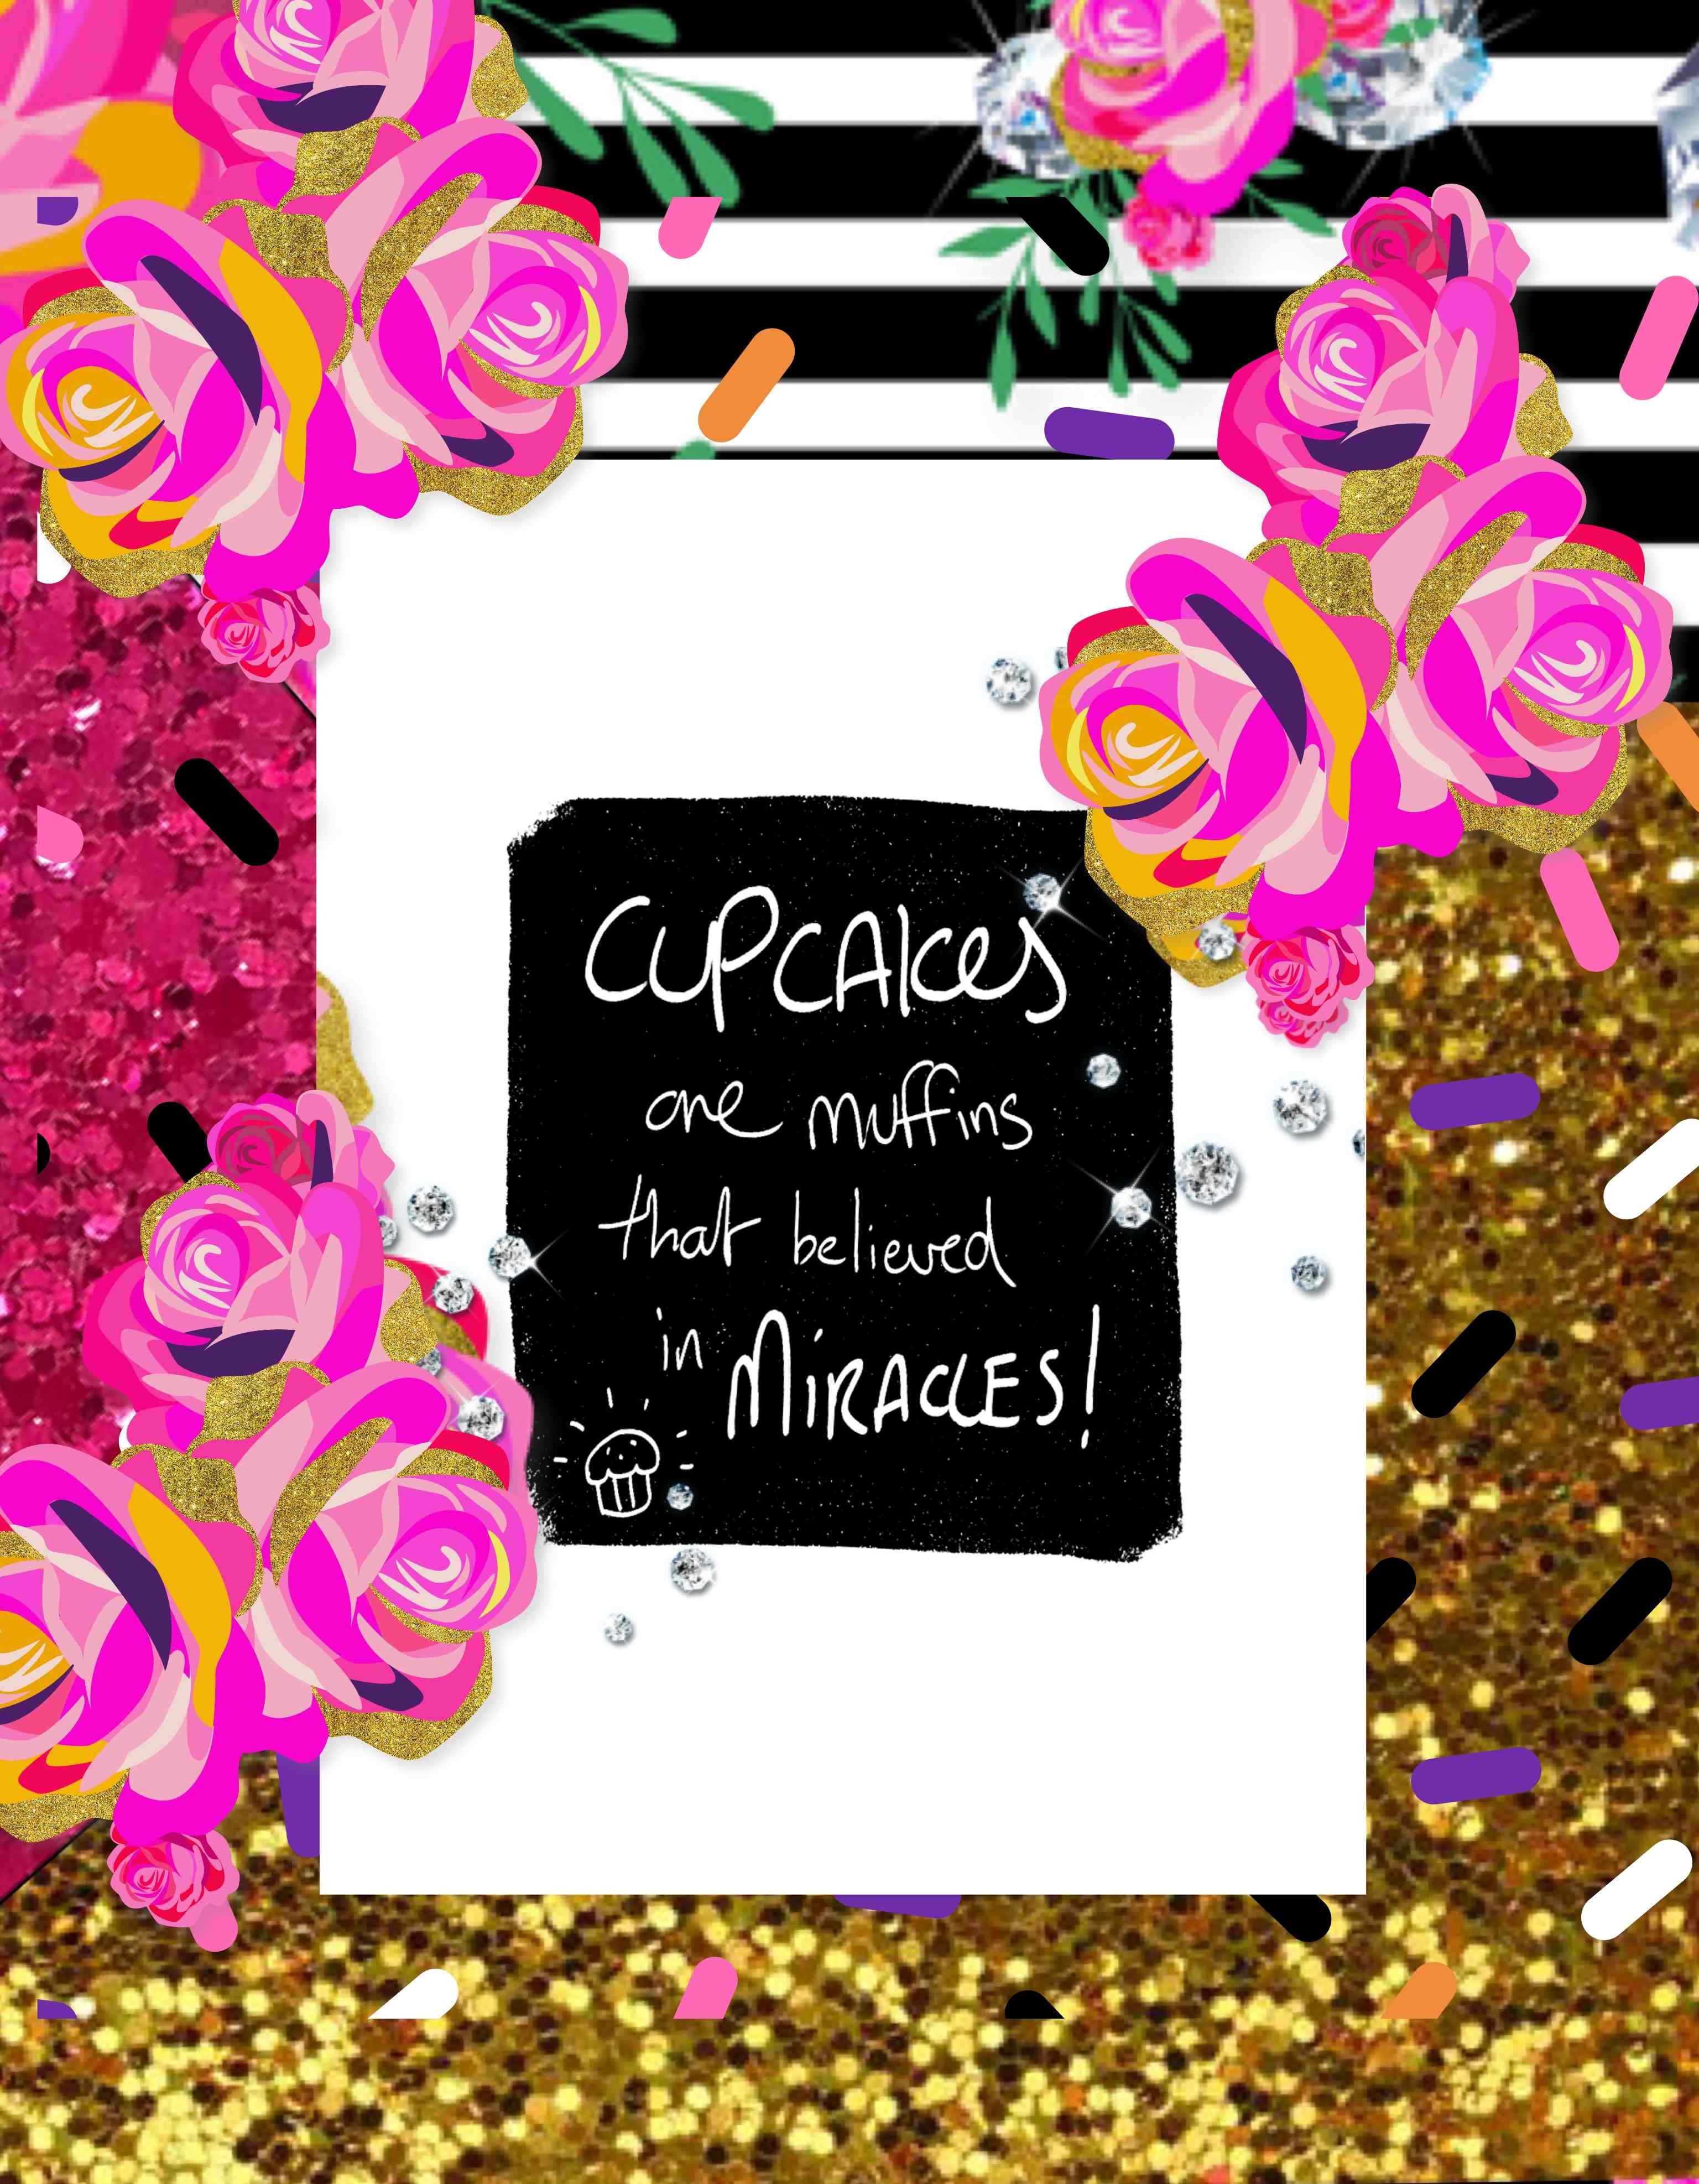 CUPCAkes
are muffins
that believed
in MiRACLES!